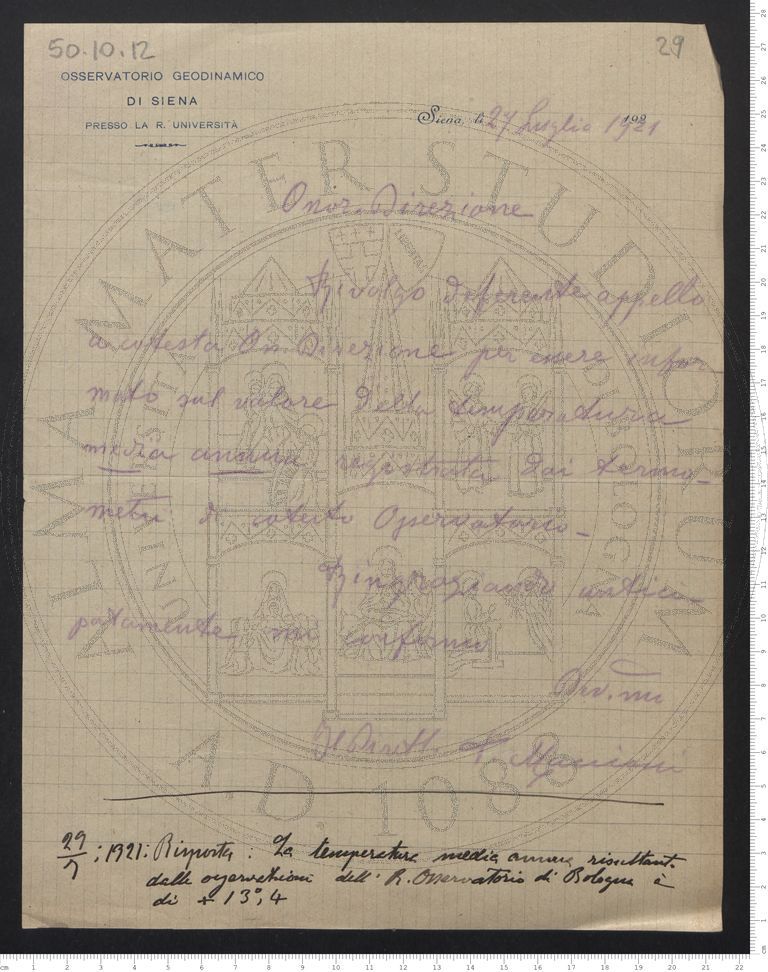 50.10.12
29
OSSERVATORIO GEODINAMICO
DI SIENA
PRESSO LA R. UNIVERSITÀ
Siena, li 27 Luglio 1921
Onor. Direzione
Rivolgo deferente appello
a cotesta On. Direzione per essere infor-
mato sul valore della temperatura
media annua registrata dai termo-
metri di cotesto Osservatorio -
Ringraziando antici-
patamente mi confermo
Dev.mo
Il Dirett.
29/7; 1921: Risposta: La temperatura media annua risultant.
dalle osservazioni dell' R. Osservatorio di Bologna è
di + 13°,4
ALMA MATER STUDIORUM
A.D. 1088